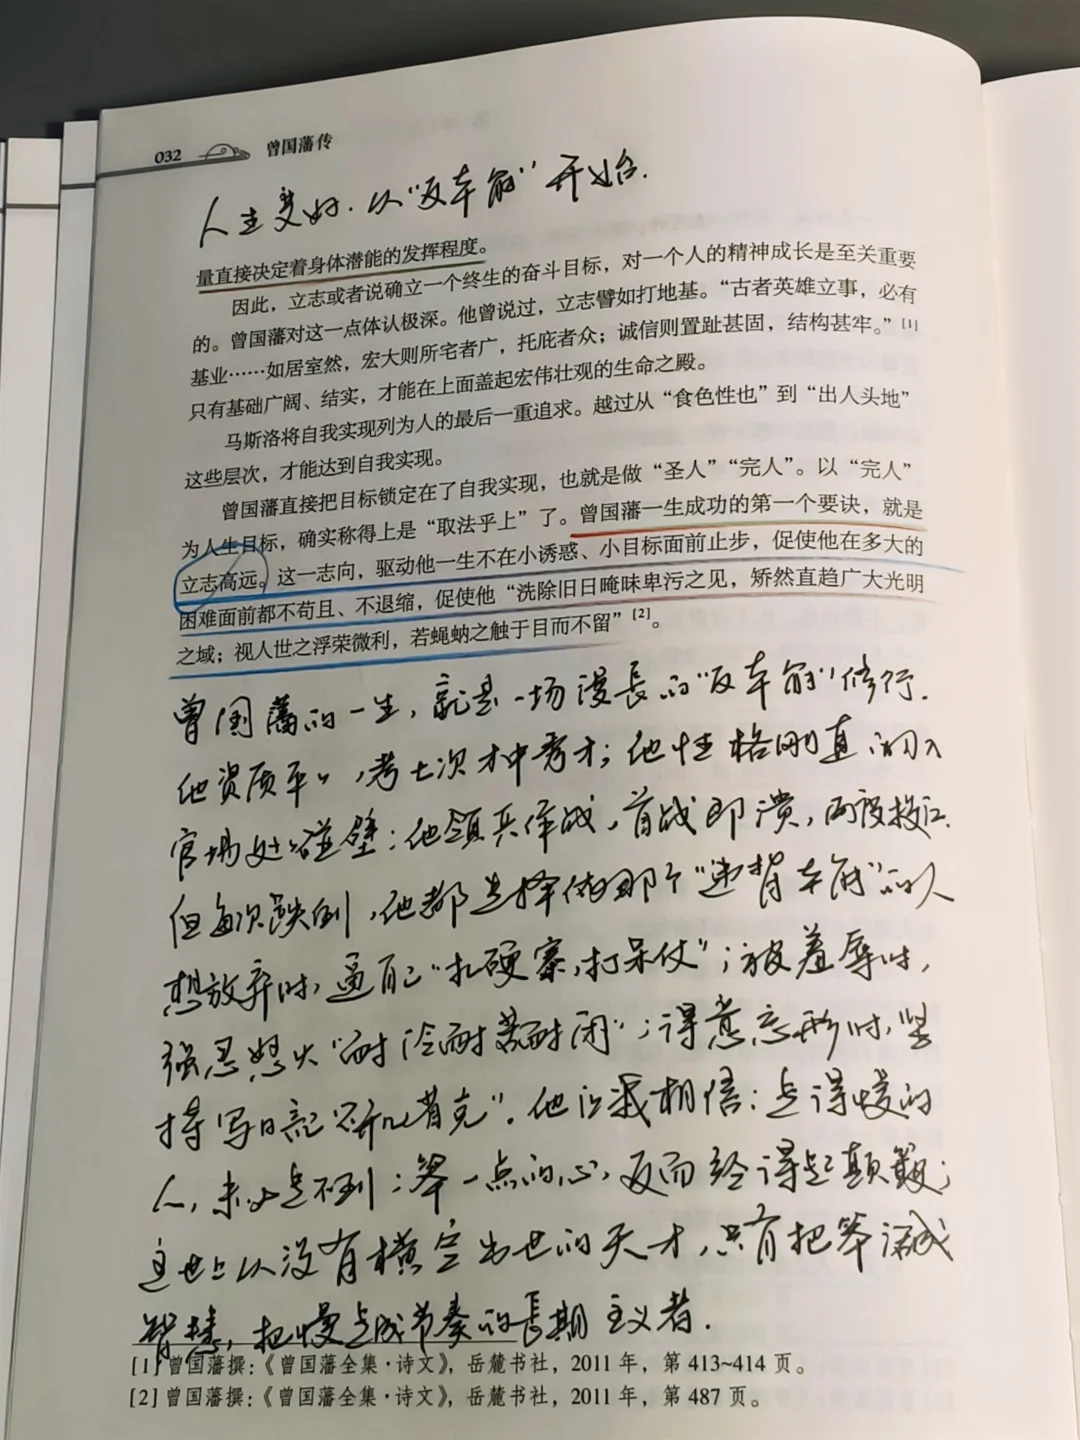 032 曾国藩传
人生变好.从“反本能”开始.
量直接决定着身体潜能的发挥程度。
因此，立志或者说确立一个终生的奋斗目标，对一个人的精神成长是至关重要
的。曾国藩对这一点体认极深。他曾说过，立志譬如打地基。“古者英雄立事，必有
基业……如居室然，宏大则所宅者广，托庇者众；诚信则置趾甚固，结构甚牢。”[1]
只有基础广阔、结实，才能在上面盖起宏伟壮观的生命之殿。
马斯洛将自我实现列为人的最后一重追求。越过从“食色性也”到“出人头地”
这些层次，才能达到自我实现。
曾国藩直接把目标锁定在了自我实现，也就是做“圣人”“完人”。以“完人”
为人生目标，确实称得上是“取法乎上”了。曾国藩一生成功的第一个要诀，就是
立志高远。这一志向，驱动他一生不在小诱惑、小目标面前止步，促使他在多大的
困难面前都不苟且、不退缩，促使他“洗除旧日晻昧卑污之见，矫然直趋广大光明
之域；视人世之浮荣微利，若蝇蚋之触于目而不留”[2]。
曾国藩的一生，就是一场漫長的“反本能”修行.
他资质平，考七次才中秀才；他性格刚直，初入
官场处处碰壁；他领兵作战，首战即溃，两度投江.
但每次跌倒，他都选择做那个“违背本能”的人
想放弃时，逼自己“扎硬寨，打呆仗”；被羞辱时，
强忍怒火“耐冷耐苦耐闲”；得意忘形时，坚
持写日記“研几省克”.他让我相信：走得慢的
人，未必走不到；笨一点的心，反而经得起颠簸；
这世上从没有横空出世的天才，只有把笨活成
智慧，把慢走成节奏的長期主义者.
[1] 曾国藩撰：《曾国藩全集·诗文》，岳麓书社，2011年，第413~414页。
[2] 曾国藩撰：《曾国藩全集·诗文》，岳麓书社，2011年，第487页。